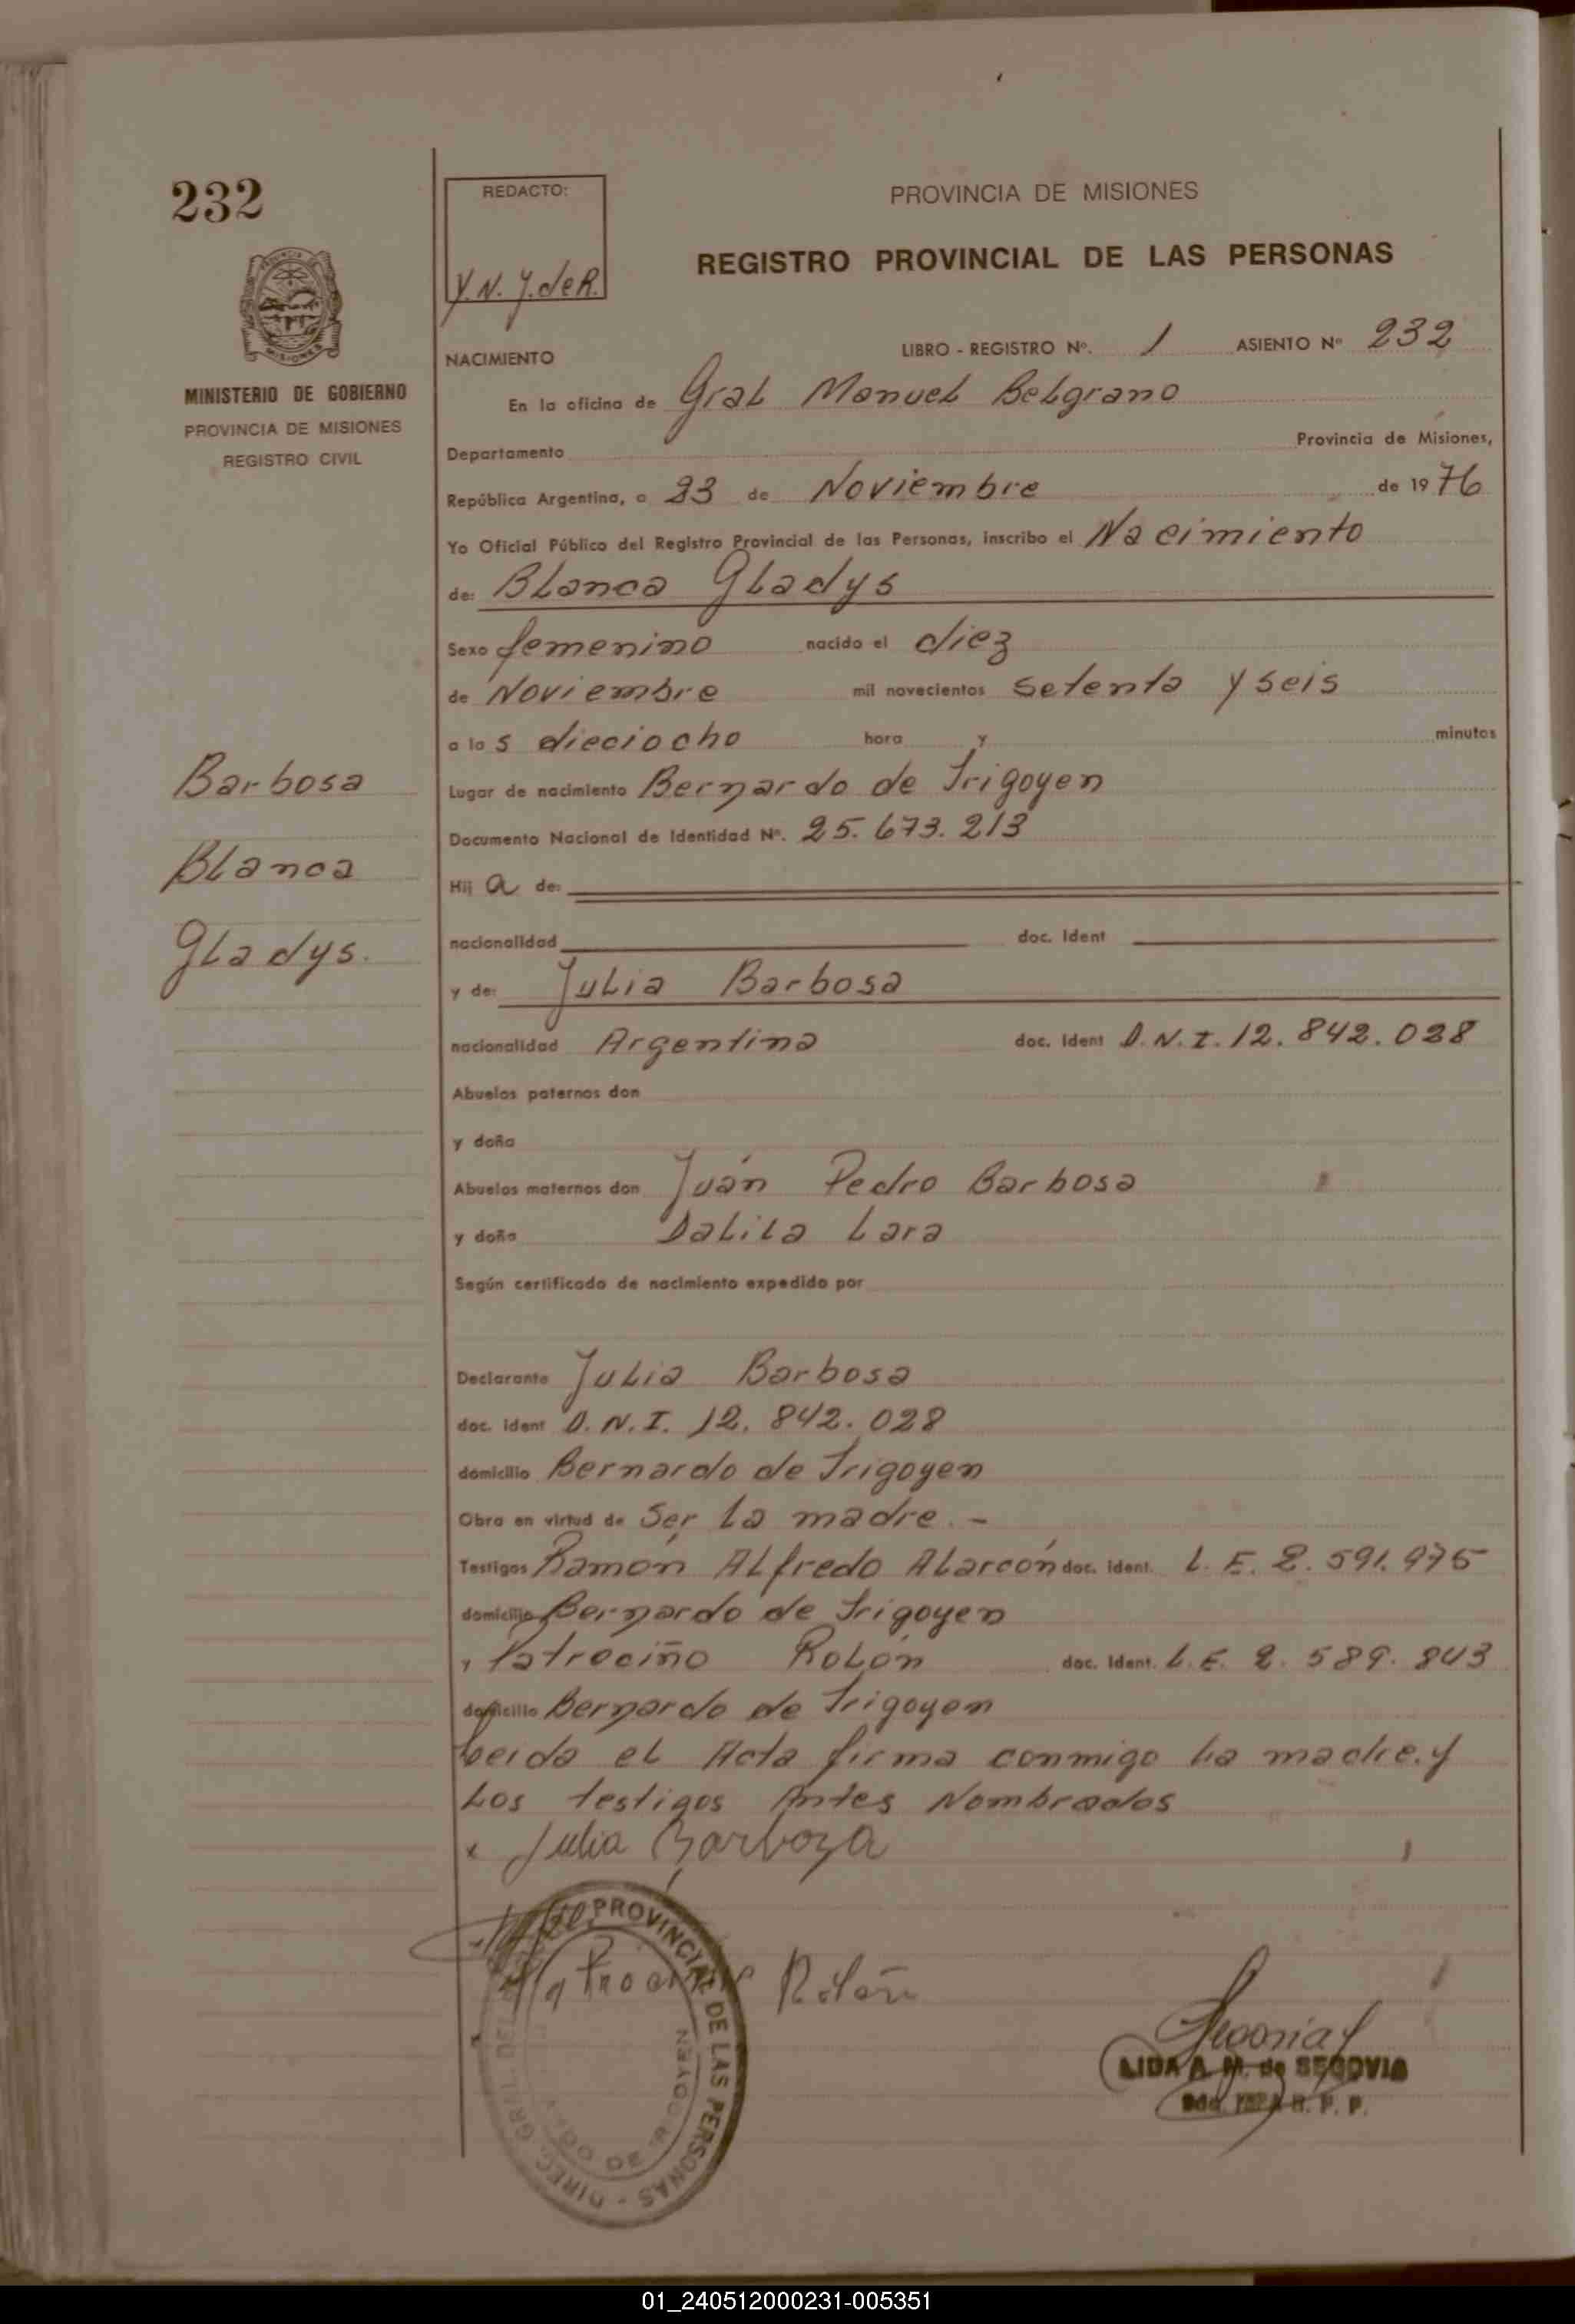 232
REDACTO:
Y. N. Y. de R.
PROVINCIA DE MISIONES
REGISTRO PROVINCIAL DE LAS PERSONAS
MISIONES
MINISTERIO DE GOBIERNO
PROVINCIA DE MISIONES
REGISTRO CIVIL
NACIMIENTO
LIBRO - REGISTRO Nº. 1 ASIENTO Nº 232
En la oficina de Gral Manuel Belgrano
Departamento Provincia de Misiones,
República Argentina, a 23 de Noviembre de 1976
Yo Oficial Público del Registro Provincial de las Personas, inscribo el Nacimiento
de: Blanca Gladys
Sexo femenino nacido el diez
de Noviembre mil novecientos setenta y seis
a las dieciocho hora y minutos
Lugar de nacimiento Bernardo de Irigoyen
Documento Nacional de Identidad Nº. 25.673.213
Hija de:
nacionalidad doc. Ident
y de: Julia Barbosa
nacionalidad Argentina doc. Ident D.N.I. 12.842.028
Abuelos paternos don
y doña
Abuelos maternos don Juán Pedro Barbosa
y doña Dalila Lara
Según certificado de nacimiento expedido por
Barbosa
Blanca
Gladys.
Declarante Julia Barbosa
doc. Ident D.N.I. 12.842.028
domicilio Bernardo de Irigoyen
Obra en virtud de Ser la madre. -
Testigos Ramón Alfredo Alarcón doc. Ident. L.E. 2.591.975
domicilio Bernardo de Irigoyen
y Patrociño Rolón doc. Ident. L.E. 2.589.843
domicilio Bernardo de Irigoyen
Leida el Acta firma conmigo la madre. y
los testigos Antes Nombrados
x Julia Barboza
PROVINCIAL DE LAS PERSONAS - DIREC. GRAL. DEL
Rolón
Segovia
LIDA A. M. de SEGOVIA
R. P. P.
01_240512000231-005351